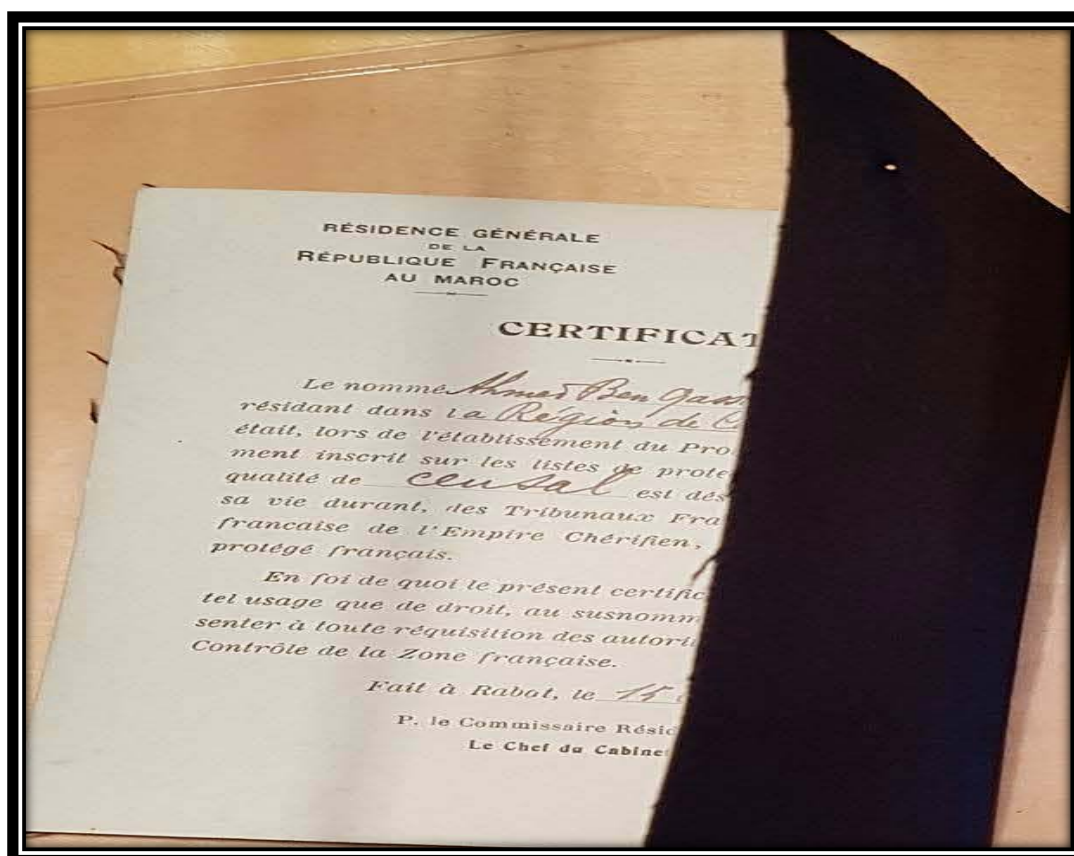 RÉSIDENCE GÉNÉRALE
DE LA
RÉPUBLIQUE FRANÇAISE
AU MAROC
CERTIFICAT
Le nommé Ahmed Ben Gass
résidant dans la Région de C
était, lors de l'établissement du Pro
ment inscrit sur les listes de prote
qualité de censal est dés
sa vie durant, des Tribunaux Fra
francaise de l'Empire Chérifien,
protégé français.
En foi de quoi le présent certific
tel usage que de droit, au susnomm
senter à toute réquisition des autori
Contrôle de la Zone française.
Fait à Rabat, le 15
P. le Commissaire Résid
Le Chef du Cabinet